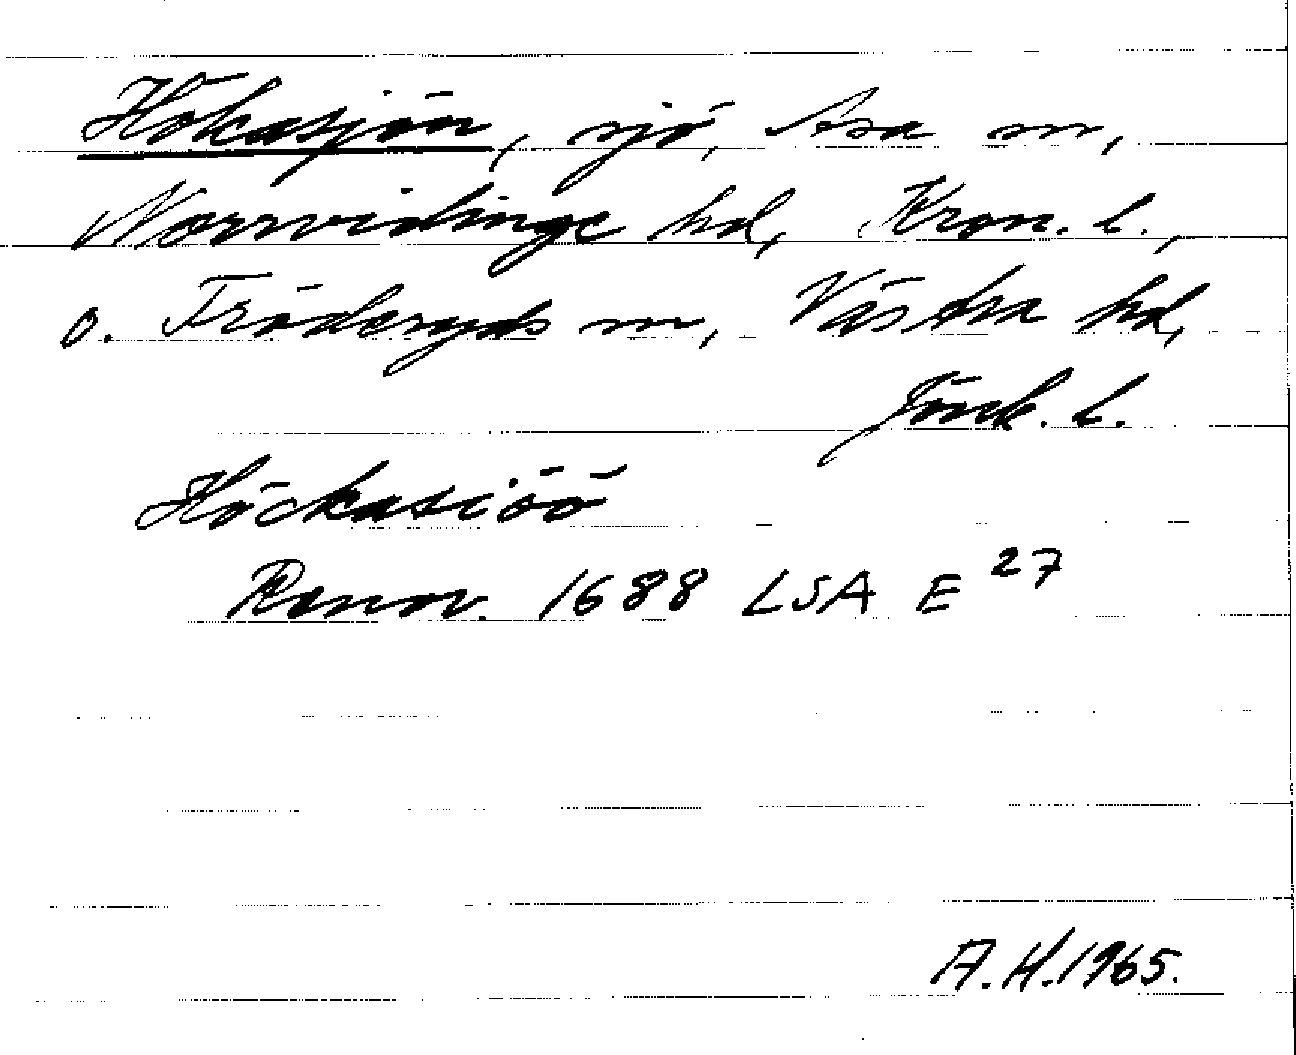 Hökasjön, sjö, Asa sn,
Norrvidinge hd, Kron. l.,
o. Fröderyds sn, Västra hd,
Jönk. l.
Höckasiöö
Ranov. 1688 LSA E 27
A.H. 1965.